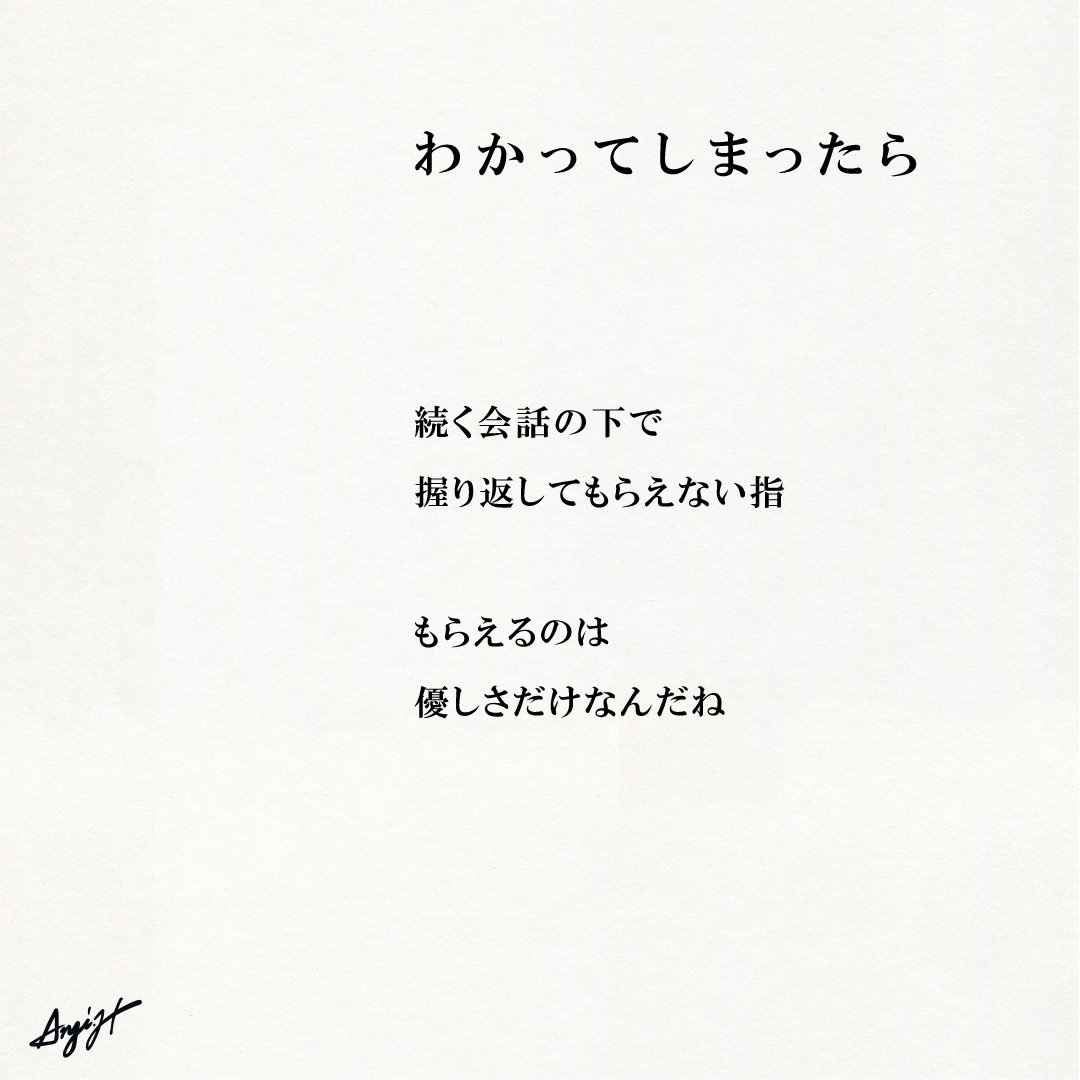 わかってしまったら
続く会話の下で
握り返してもらえない指
もらえるのは
優しさだけなんだね
Angi.H